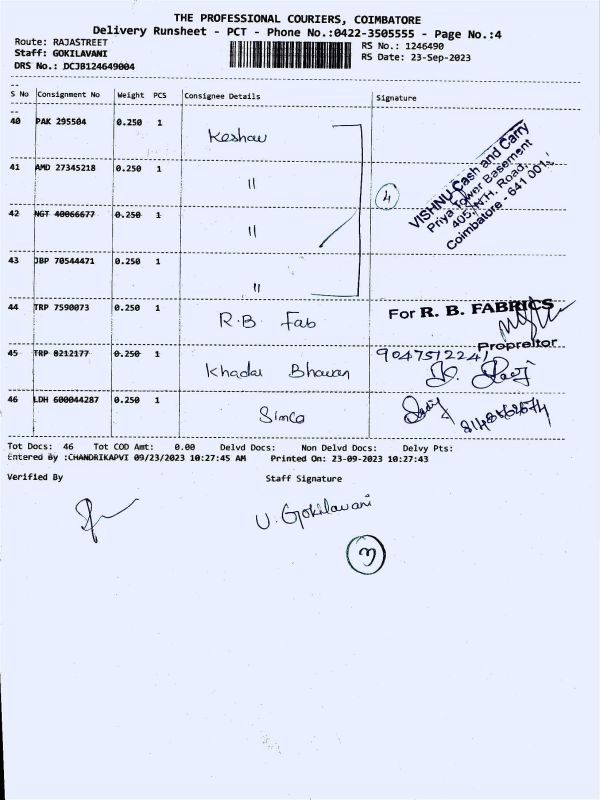 THE PROFESSIONAL COURIERS, COIMBATORE
Delivery Runsheet - PCT - Phone No.:0422-3505555 - Page No.:4
Route: RAJASTREET
Staff: GOKILAVANI
DRS No.: DCJB124649004
RS No.: 1246490
RS Date: 23-Sep-2023
S No Consignment No Weight PCS Consignee Details Signature
40 PAK 295504 0.250 1 Keshav
41 AMD 27345218 0.250 1 "
42 NGT 40066677 0.250 1 "
43 JBP 70544471 0.250 1 "
4
VISHNU Cash and Carry
Priya Tower Basement
405, N.H. Road,
Coimbatore - 641 001.
44 TRP 7590073 0.250 1 R.B Fab
For R. B. FABRICS
Propreitor
45 TRP 8212177 0.250 1 Khadai Bhavan
9047512241
46 LDH 600044287 0.250 1 Simco
Tot Docs: 46 Tot COD Amt: 0.00 Delvd Docs: Non Delvd Docs: Delvy Pts:
Entered By :CHANDRIKAPVI 09/23/2023 10:27:45 AM Printed On: 23-09-2023 10:27:43
Verified By Staff Signature
U. Gokilavani
3